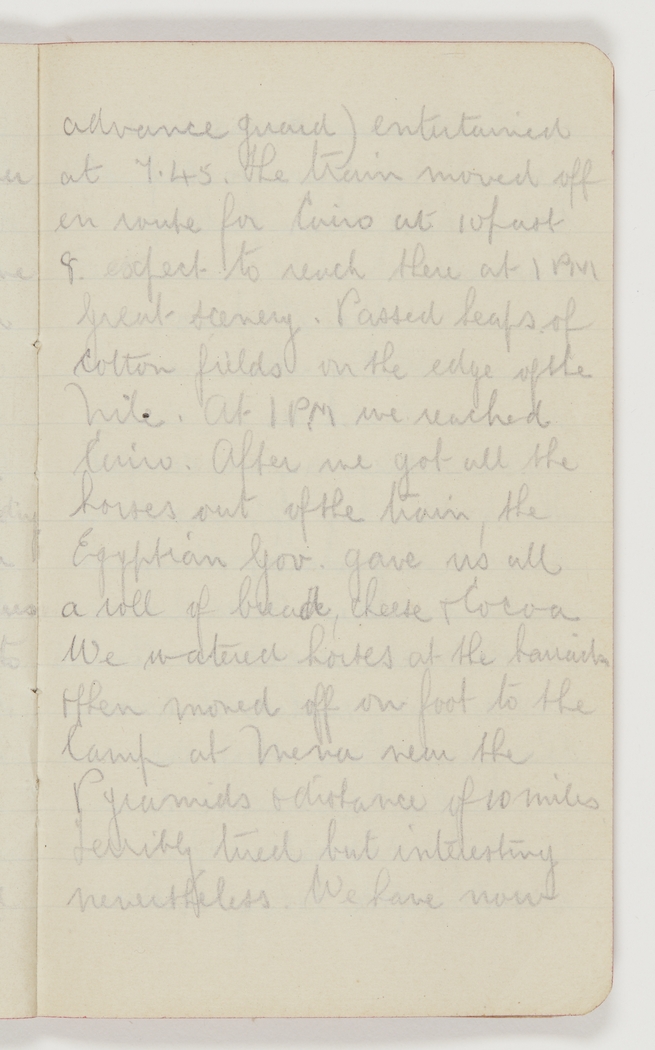 advance guard) entertained
at 7.45. The train moved off
en route for Cairo at 10 past
8. expect to reach there at 1 PM
Great scenery. Passed heaps of
cotton fields on the edge of the
Nile. At 1 PM we reached
Cairo. After we got all the
horses out of the train, the
Egyptian Gov. gave us all
a roll of bread, cheese & Cocoa
We watered horses at the barracks
& then moved off on foot to the
Camp at Mena near the
Pyramids a distance of 10 miles
terribly tired but interesting
nevertheless. We have now